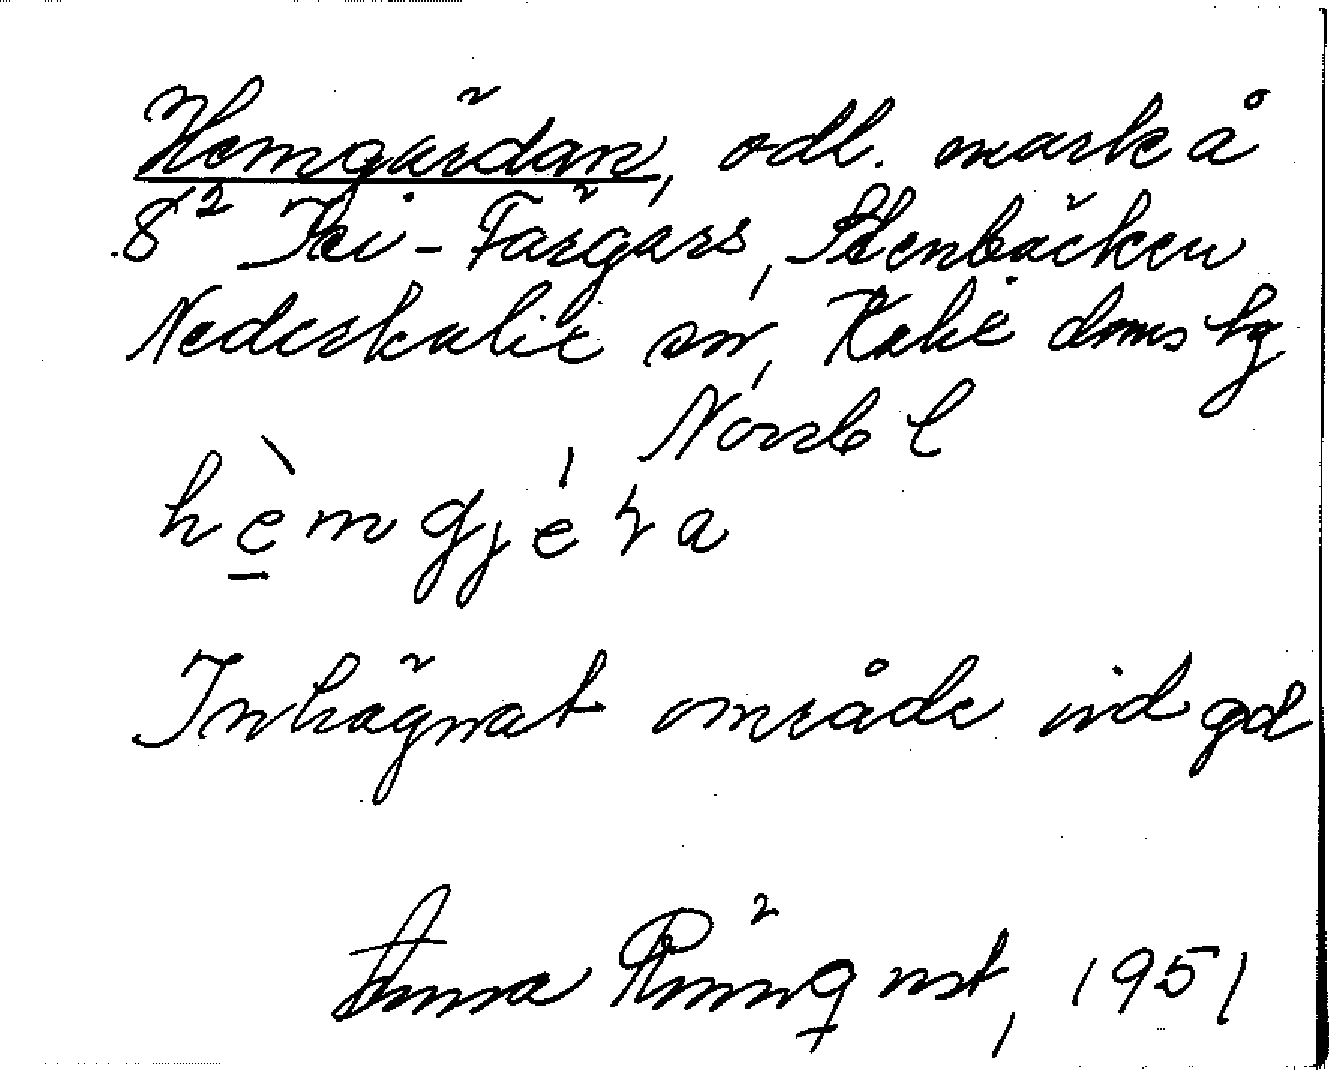 Hemgärdan, odl. mark å
8² Tei-Färgars, Stenbäcken
Nederkalix sn, Kalix doms hg
Norrb l
hèm gjéra
Inhägnat område vid gd
Anna Rönnqvist, 1951